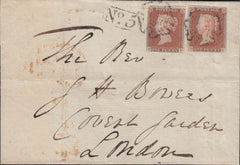 No. 5
The Rev
G H Bowers
Covent Garden
London